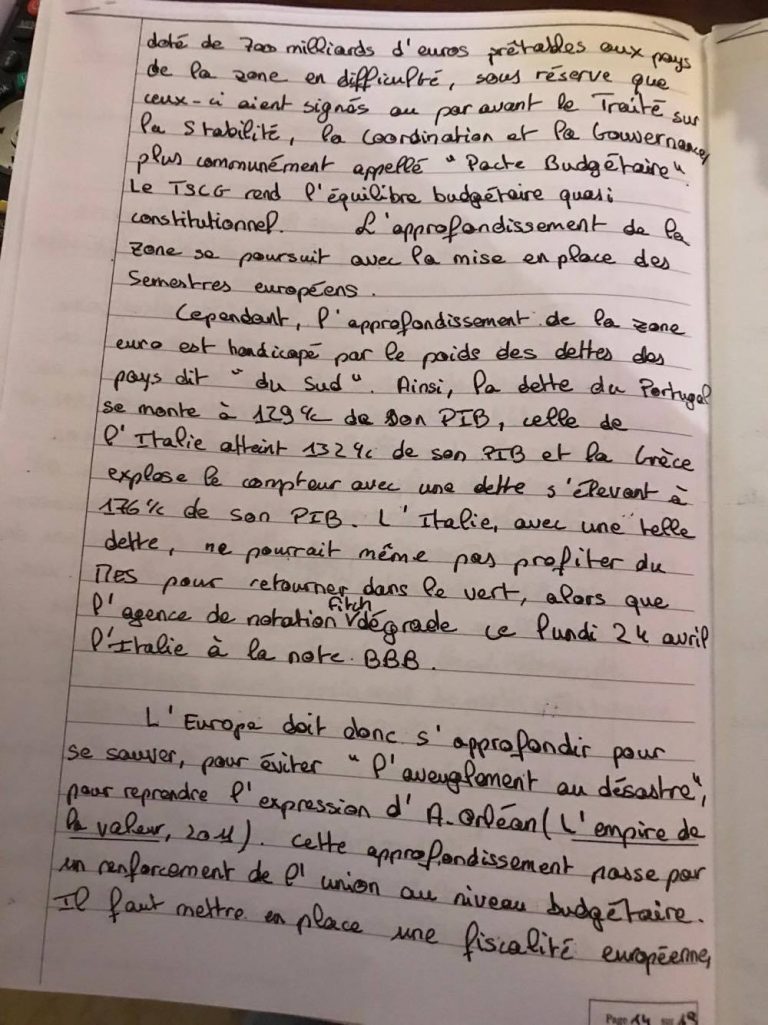 doté de 700 milliards d'euros prêtables aux pays
de la zone en difficulté, sous réserve que
ceux-ci aient signés au par avant le Traité sur
la Stabilité, la Coordination et la Gouvernance,
plus communément appellé "Pacte Budgétaire".
Le TSCG rend l'équilibre budgétaire quasi
constitutionnel. L'approfondissement de la
zone se poursuit avec la mise en place des
Semestres européens.
Cependant, l'approfondissement de la zone
euro est handicapé par le poids des dettes des
pays dit "du Sud". Ainsi, la dette du Portugal
se monte à 129% de son PIB, celle de
l'Italie atteint 132% de son PIB et la Grèce
explose le compteur avec une dette s'élevant à
176% de son PIB. L'Italie, avec une telle
dette, ne pourrait même pas profiter du
MES pour retourner dans le vert, alors que
l'agence de notation Fitch dégrade ce lundi 24 avril
l'Italie à la note BBB.
L'Europe doit donc s'approfondir pour
se sauver, pour éviter "l'aveuglement au désastre",
pour reprendre l'expression d'A. Orléan (L'empire de
la valeur, 2011). Cette approfondissement passe par
un renforcement de l'union au niveau budgétaire.
Il faut mettre en place une fiscalité européenne,
Page 14 sur 19